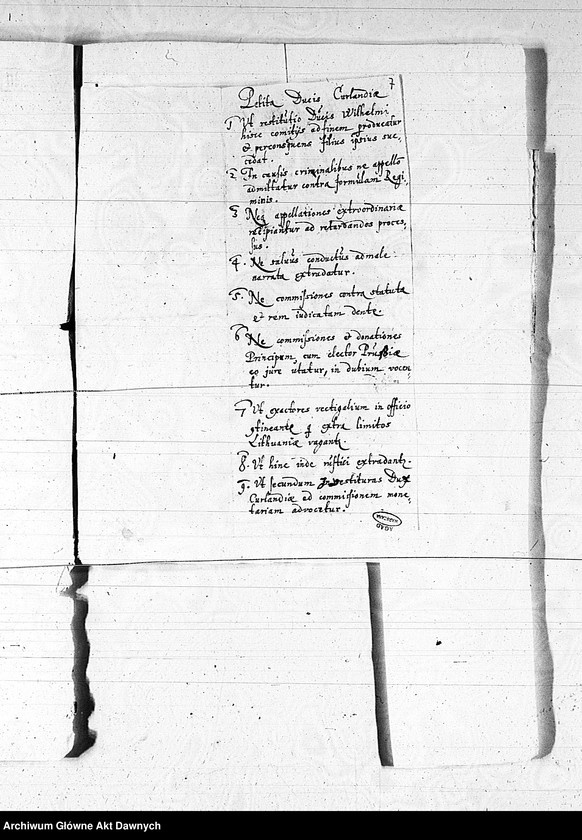 7
Petita Ducis Curlandiæ
1. Ut restitutio Ducis Wilhelmi
hisce comitijs ad finem producatur
& perconsequens filius ipsius suc-
cedat.
2. In causis criminalibus ne appello
admittatur contra formulam Regi-
minis.
3 Neq appellationes extraordinariæ
recipiantur ad retardandos proces-
sus.
4. Ne salvus conductus ad male
narrata extradatur.
5. Ne commissiones contra statuta
et rem iudicatam dentr.
6 Ne commissiones & donationes
Principum, cum elector Prussiæ
eo jure utatur, in dubium vocen-
tur.
7 Ut exactores vectigalium in officio
extra limites
Lithuaniæ vagentr.
8. Ut hinc inde rustici extradantr.
9. Ut secundum Investituras Dux
Curlandiæ ad commissionem mone-
tariam advocetur.
AGAD
WARSZAWA
Archiwum Główne Akt Dawnych